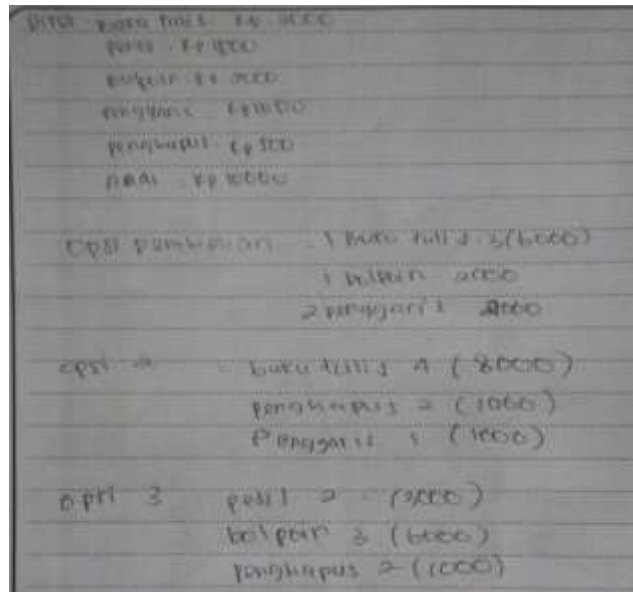 buku tulis Rp 2000
Rp 1500
bolpoin Rp 2000
penggaris Rp 1000
penghapus Rp 500
Rp 10000
opsi pembelian 1 buku tulis 3 (6000)
1 bolpoin 2000
2 penggaris 2000
opsi 2 buku tulis 4 (8000)
penghapus 2 (1000)
Penggaris 1 (1000)
opsi 3 2 (3000)
bolpoin 3 (6000)
penghapus 2 (1000)